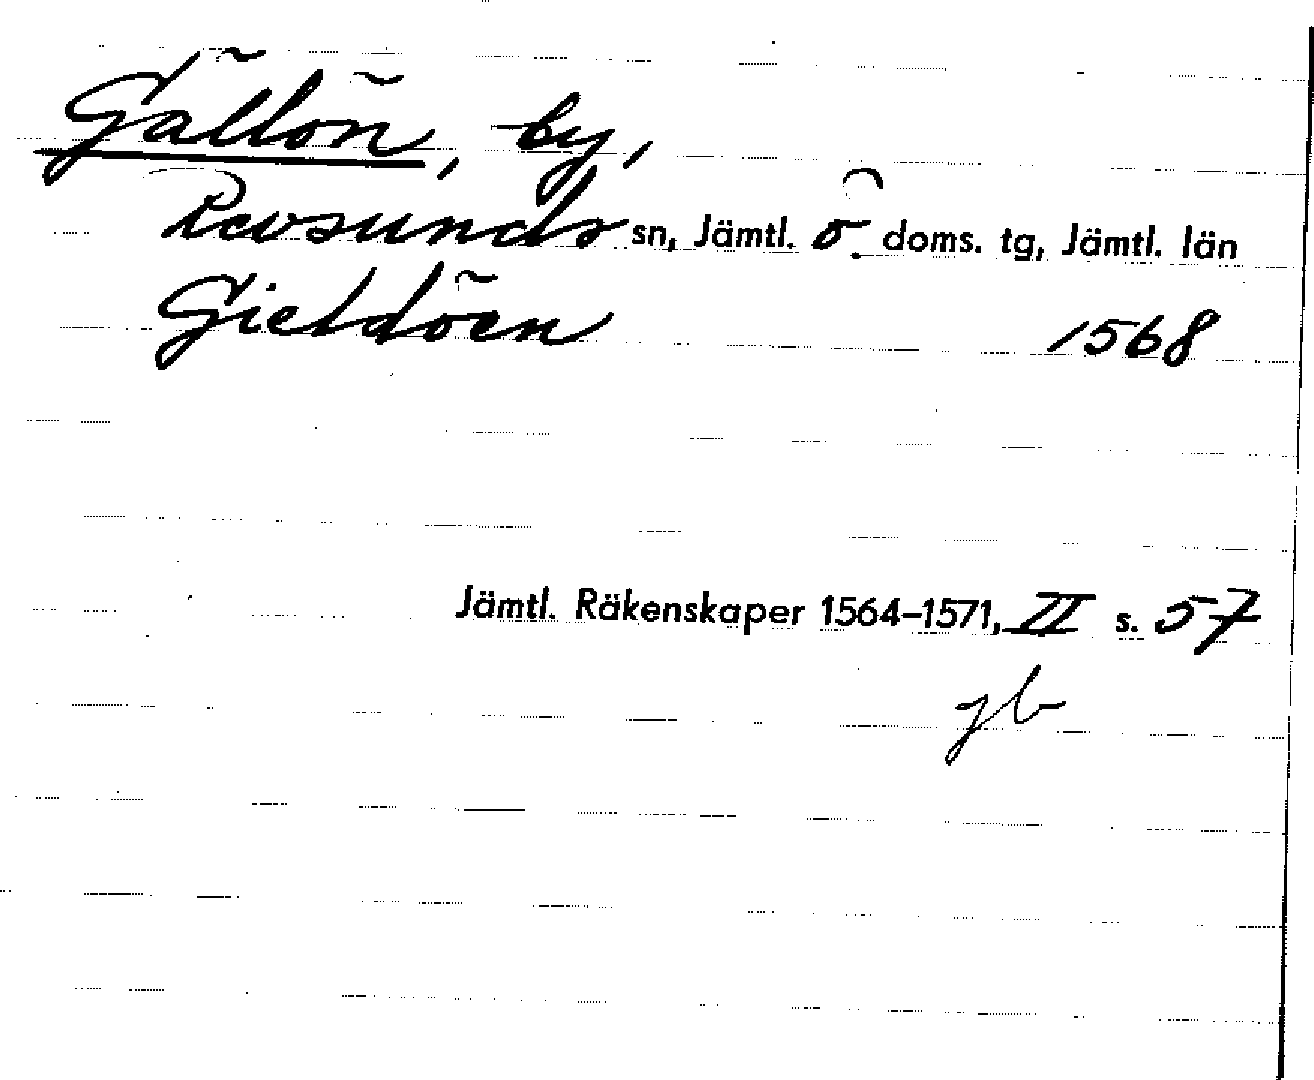 Gällön, by,
Revsunds sn, Jämtl. ö. doms. tg, Jämtl. län
Gieldöen 1568
Jämtl. Räkenskaper 1564–1571, II s. 57
jb